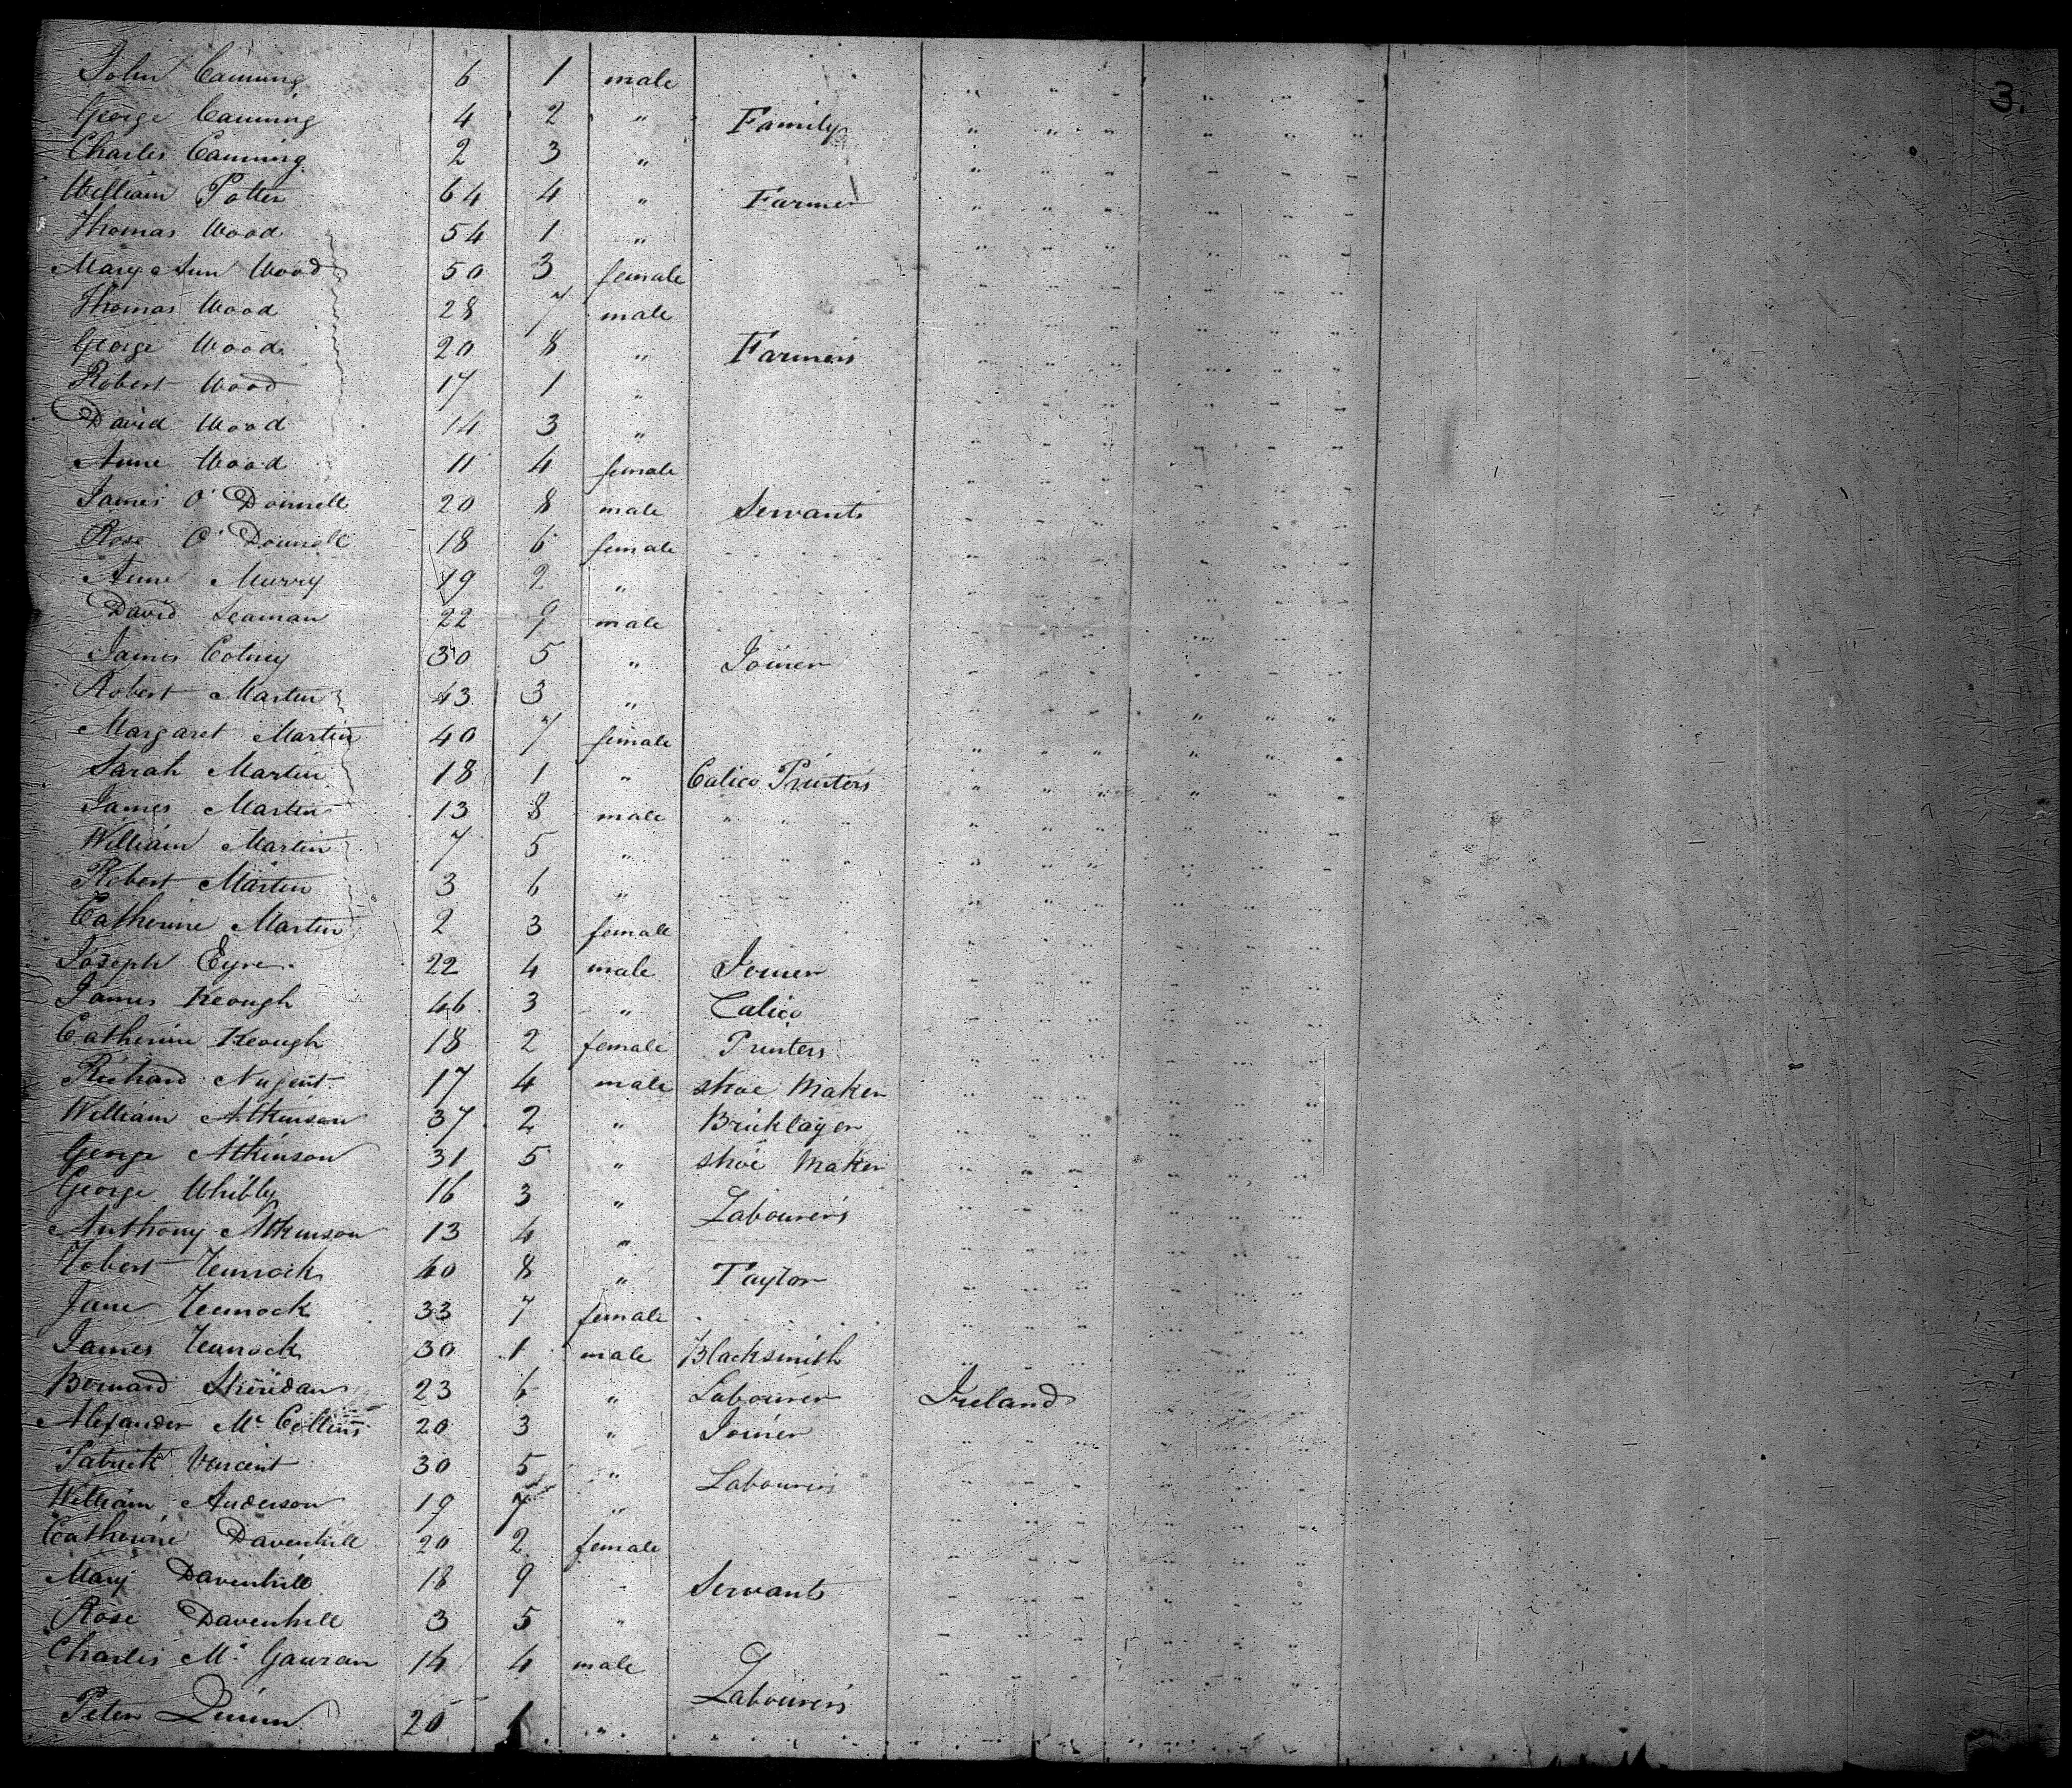 3.
John Canning 6 1 male
George Canning 4 2 " Family
Charles Canning 2 3 "
William Potter 64 4 " Farmer
Thomas Wood 54 1 "
Mary Ann Wood 50 3 female
Thomas Wood 28 7 male
George Wood 20 8 " Farmers
Robert Wood 17 1 "
David Wood 14 3 "
Anne Wood 11 4 female
James O'Donnell 20 8 male Servants
Rose O'Donnell 18 6 female
Anne Murry 19 2 "
David Seaman 22 9 male
James 30 5 " Joiner
Robert Martin 43 3 "
Margaret Martin 40 7 female
Sarah Martin 18 1 " Calico Printers
James Martin 13 8 male
William Martin 7 5 "
Robert Martin 3 6 "
Catherine Martin 2 3 female
Joseph Eyre 22 4 male Joiner
James Keough 46 3 " Calico
Catherine Keough 18 2 female Printers
Richard Nugent 17 4 male Shoe Maker
William Atkinson 37 2 " Bricklayer
George Atkinson 31 5 " Shoe Maker
George Whibly 16 3 " Labourers
Anthony Atkinson 13 4 "
Robert 40 8 " Taylor
Jane 33 7 female
James 30 1 male Blacksmith
Bernard Sheridan 23 6 " Labourer Ireland
Alexander Mc Collins 20 3 " Joiner
Patrick Vincent 30 5 " Labourers
William Anderson 19 7 "
Catherine Davenhill 20 2 female
Mary Davenhill 18 9 " Servants
Rose Davenhill 3 5 "
Charles Mc Gauran 14 4 male Labourers
Peter Quinn 20 1 "